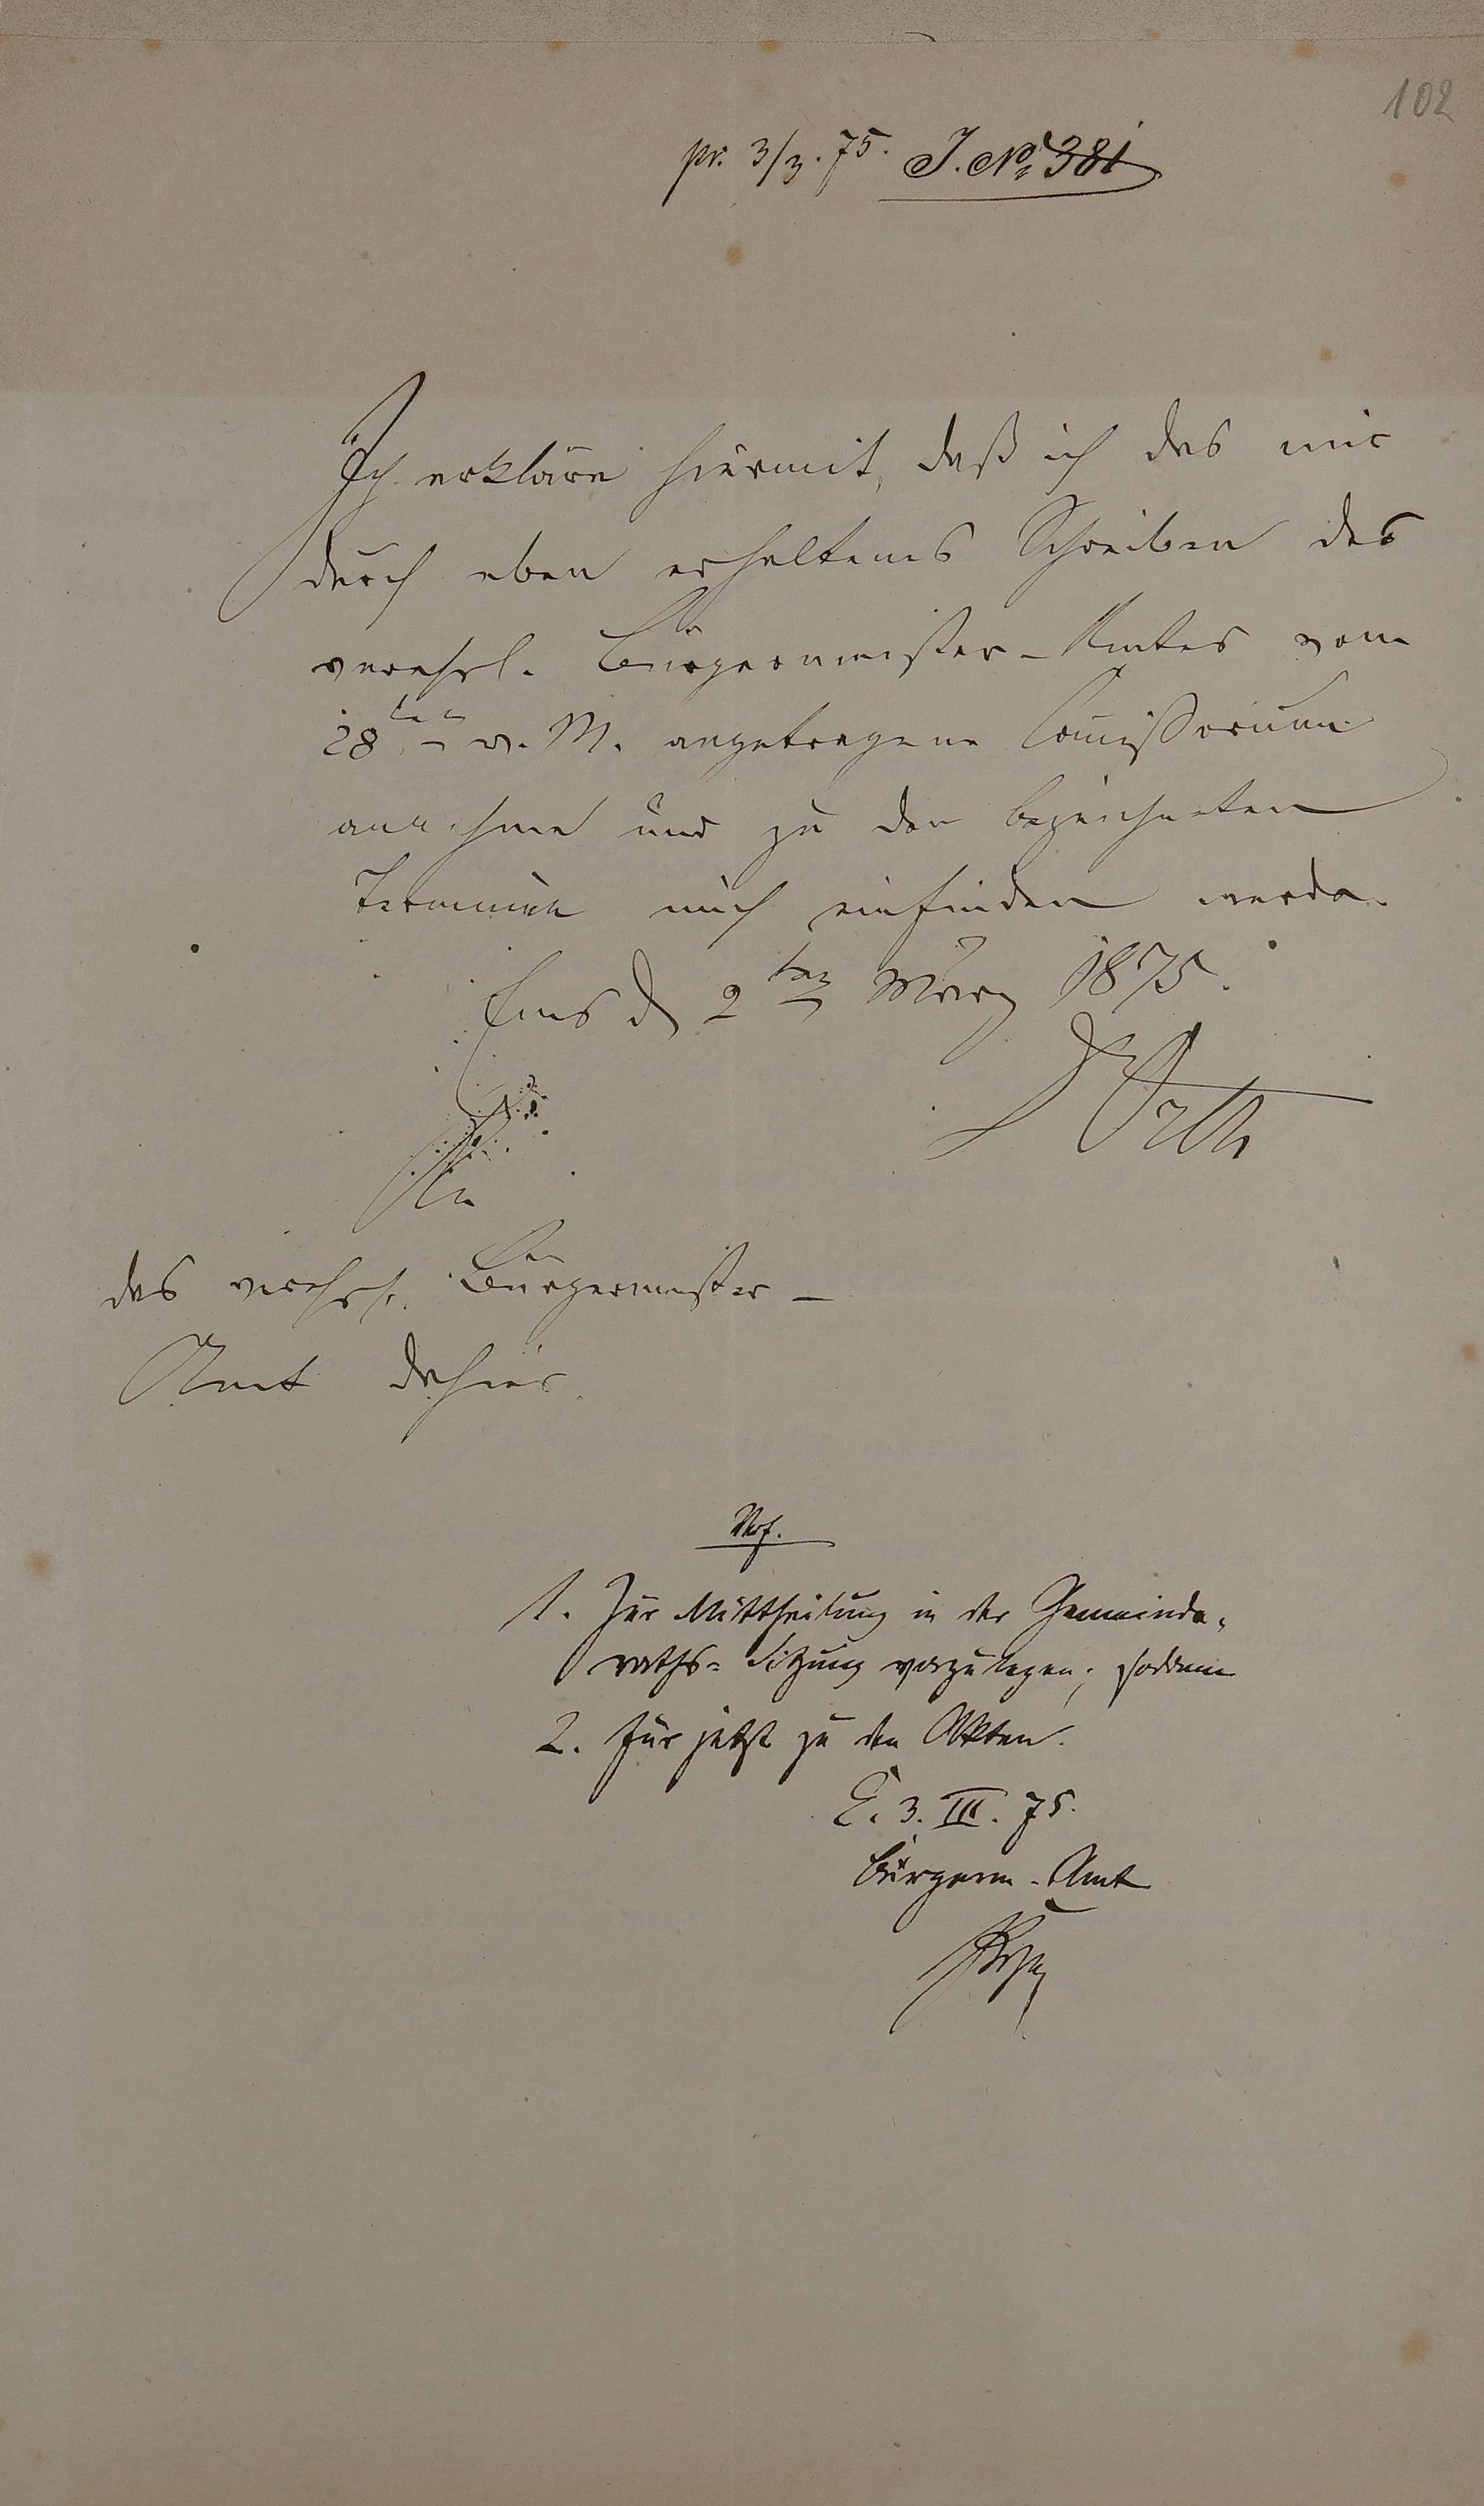 102
pr. 3/3. 75. J. No 381
Ich erkläre hiermit, daß ich das mir
durch eben erhaltenes Schreiben des
verehrl. Bürgermeister-Amtes vom
28ten v. M. angetragene Commissorium
annehme und zu den bezeichneten
Terminen mich einfinden werde.
Ems d 2ten März 1875.
Dr Orth
An
das verehrl. Bürgermeister-
Amt dahier
Vrf.
1. Zur Mittheilung in der Gemeinde-
raths-Sitzung vorzulegen; sodann
2. Für jetzt zu den Akten.
E. 3. III. 75.
Bürgerm-Amt